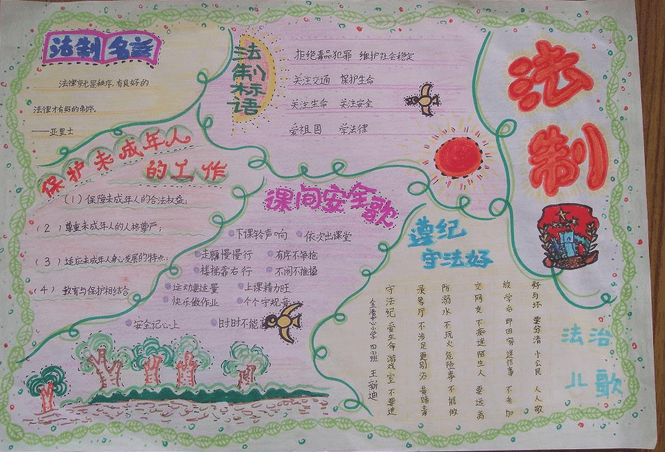 法制名言
法律就是秩序,有良好的
法律才有好的秩序。
——亚里士
法制标语
拒绝毒品犯罪 维护社会稳定
关注交通 保护生命
关注生命 关注安全
爱祖国 学法律
法制
保护未成年人
的工作
(1)保障未成年人的合法权益;
(2)尊重未成年人的人格尊严;
(3)适应未成年人身心发展的特点;
(4)教育与保护相结合
课间安全歌
下课铃声响 依次出课堂
走廊慢慢行 有序不争抢
楼梯靠右行 不闹不推搡
运动要适量 上课精力旺
快乐做作业 个个守规章
安全记心上 时时不能
遵纪
守法好
法治
儿歌
好与坏 要分清 小公民 人人敬
放学后 即回家 迷信事 不参加
交网友 不邀陌生人 要远离
防溺水 不玩火 危险事 不能做
录像厅 不涉足 更别去
守法纪 爱生命 游戏室 不要进
小学 四班 王